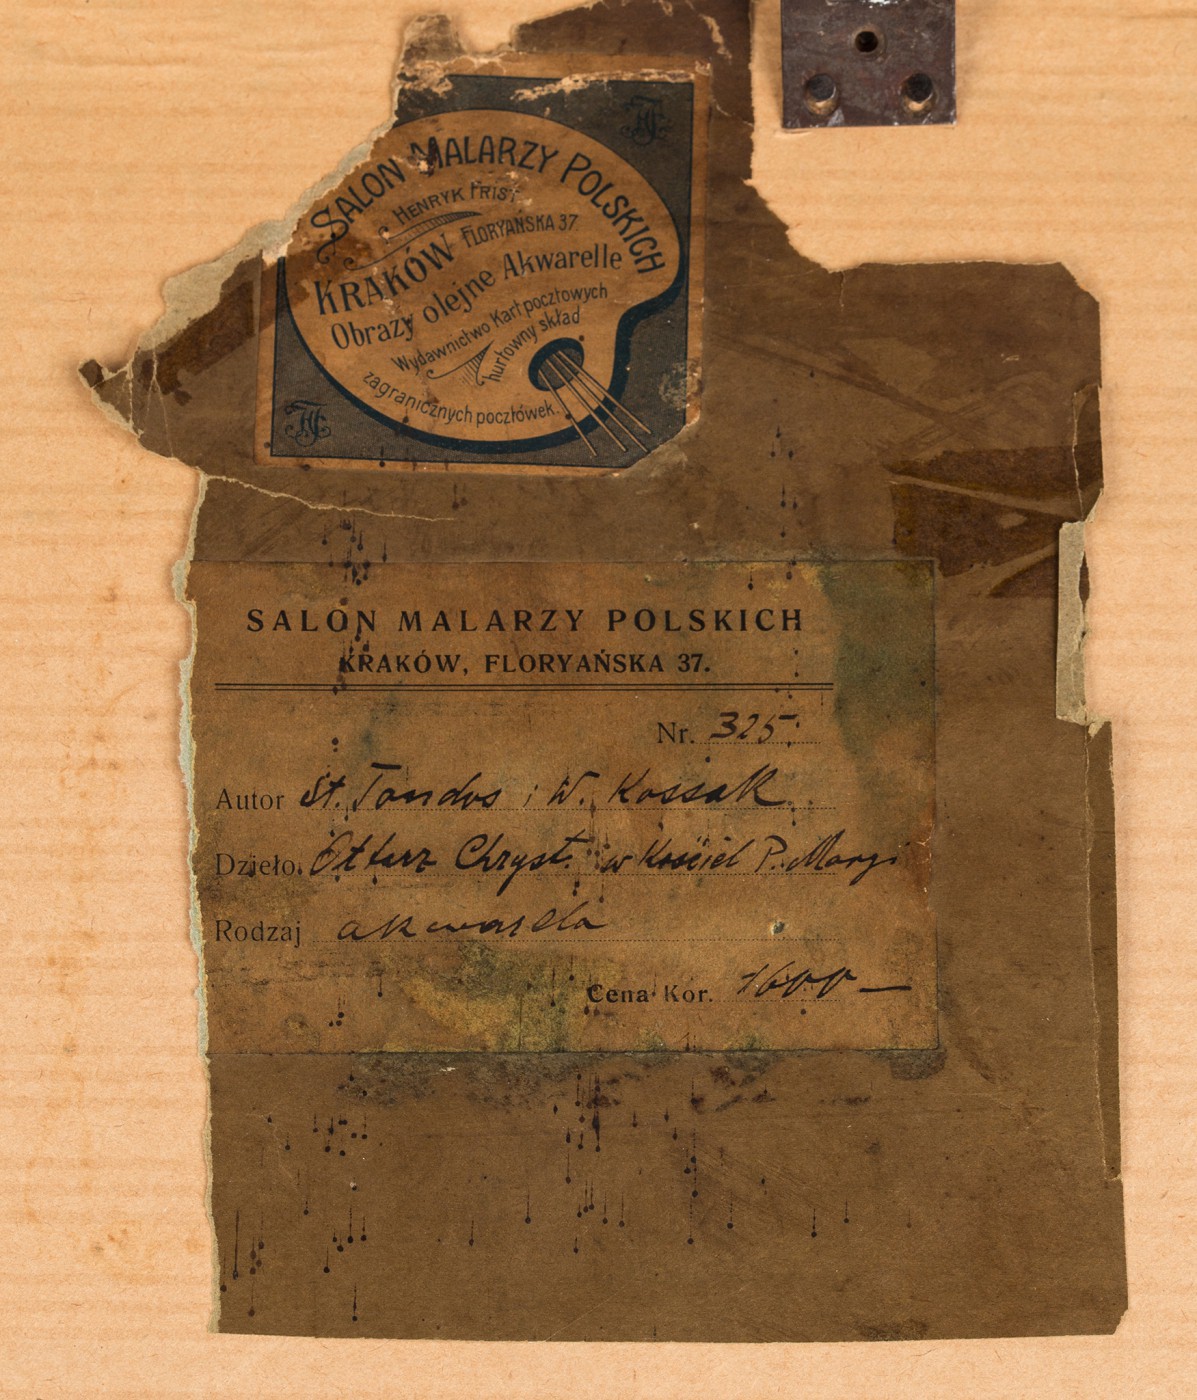 SALON MALARZY POLSKICH
HENRYK FRIST
KRAKÓW FLORYAŃSKA 37.
Obrazy olejne Akwarelle
Wydawnictwo Kart pocztowych
hurtowny skład
zagranicznych pocztówek.
SALON MALARZY POLSKICH
KRAKÓW, FLORYAŃSKA 37.
Nr. 325
Autor St. Tondos i W. Kossak
Dzieło Ołtarz Chryst. w Kościel P. Maryi
Rodzaj akwarela
Cena Kor. 1600 —